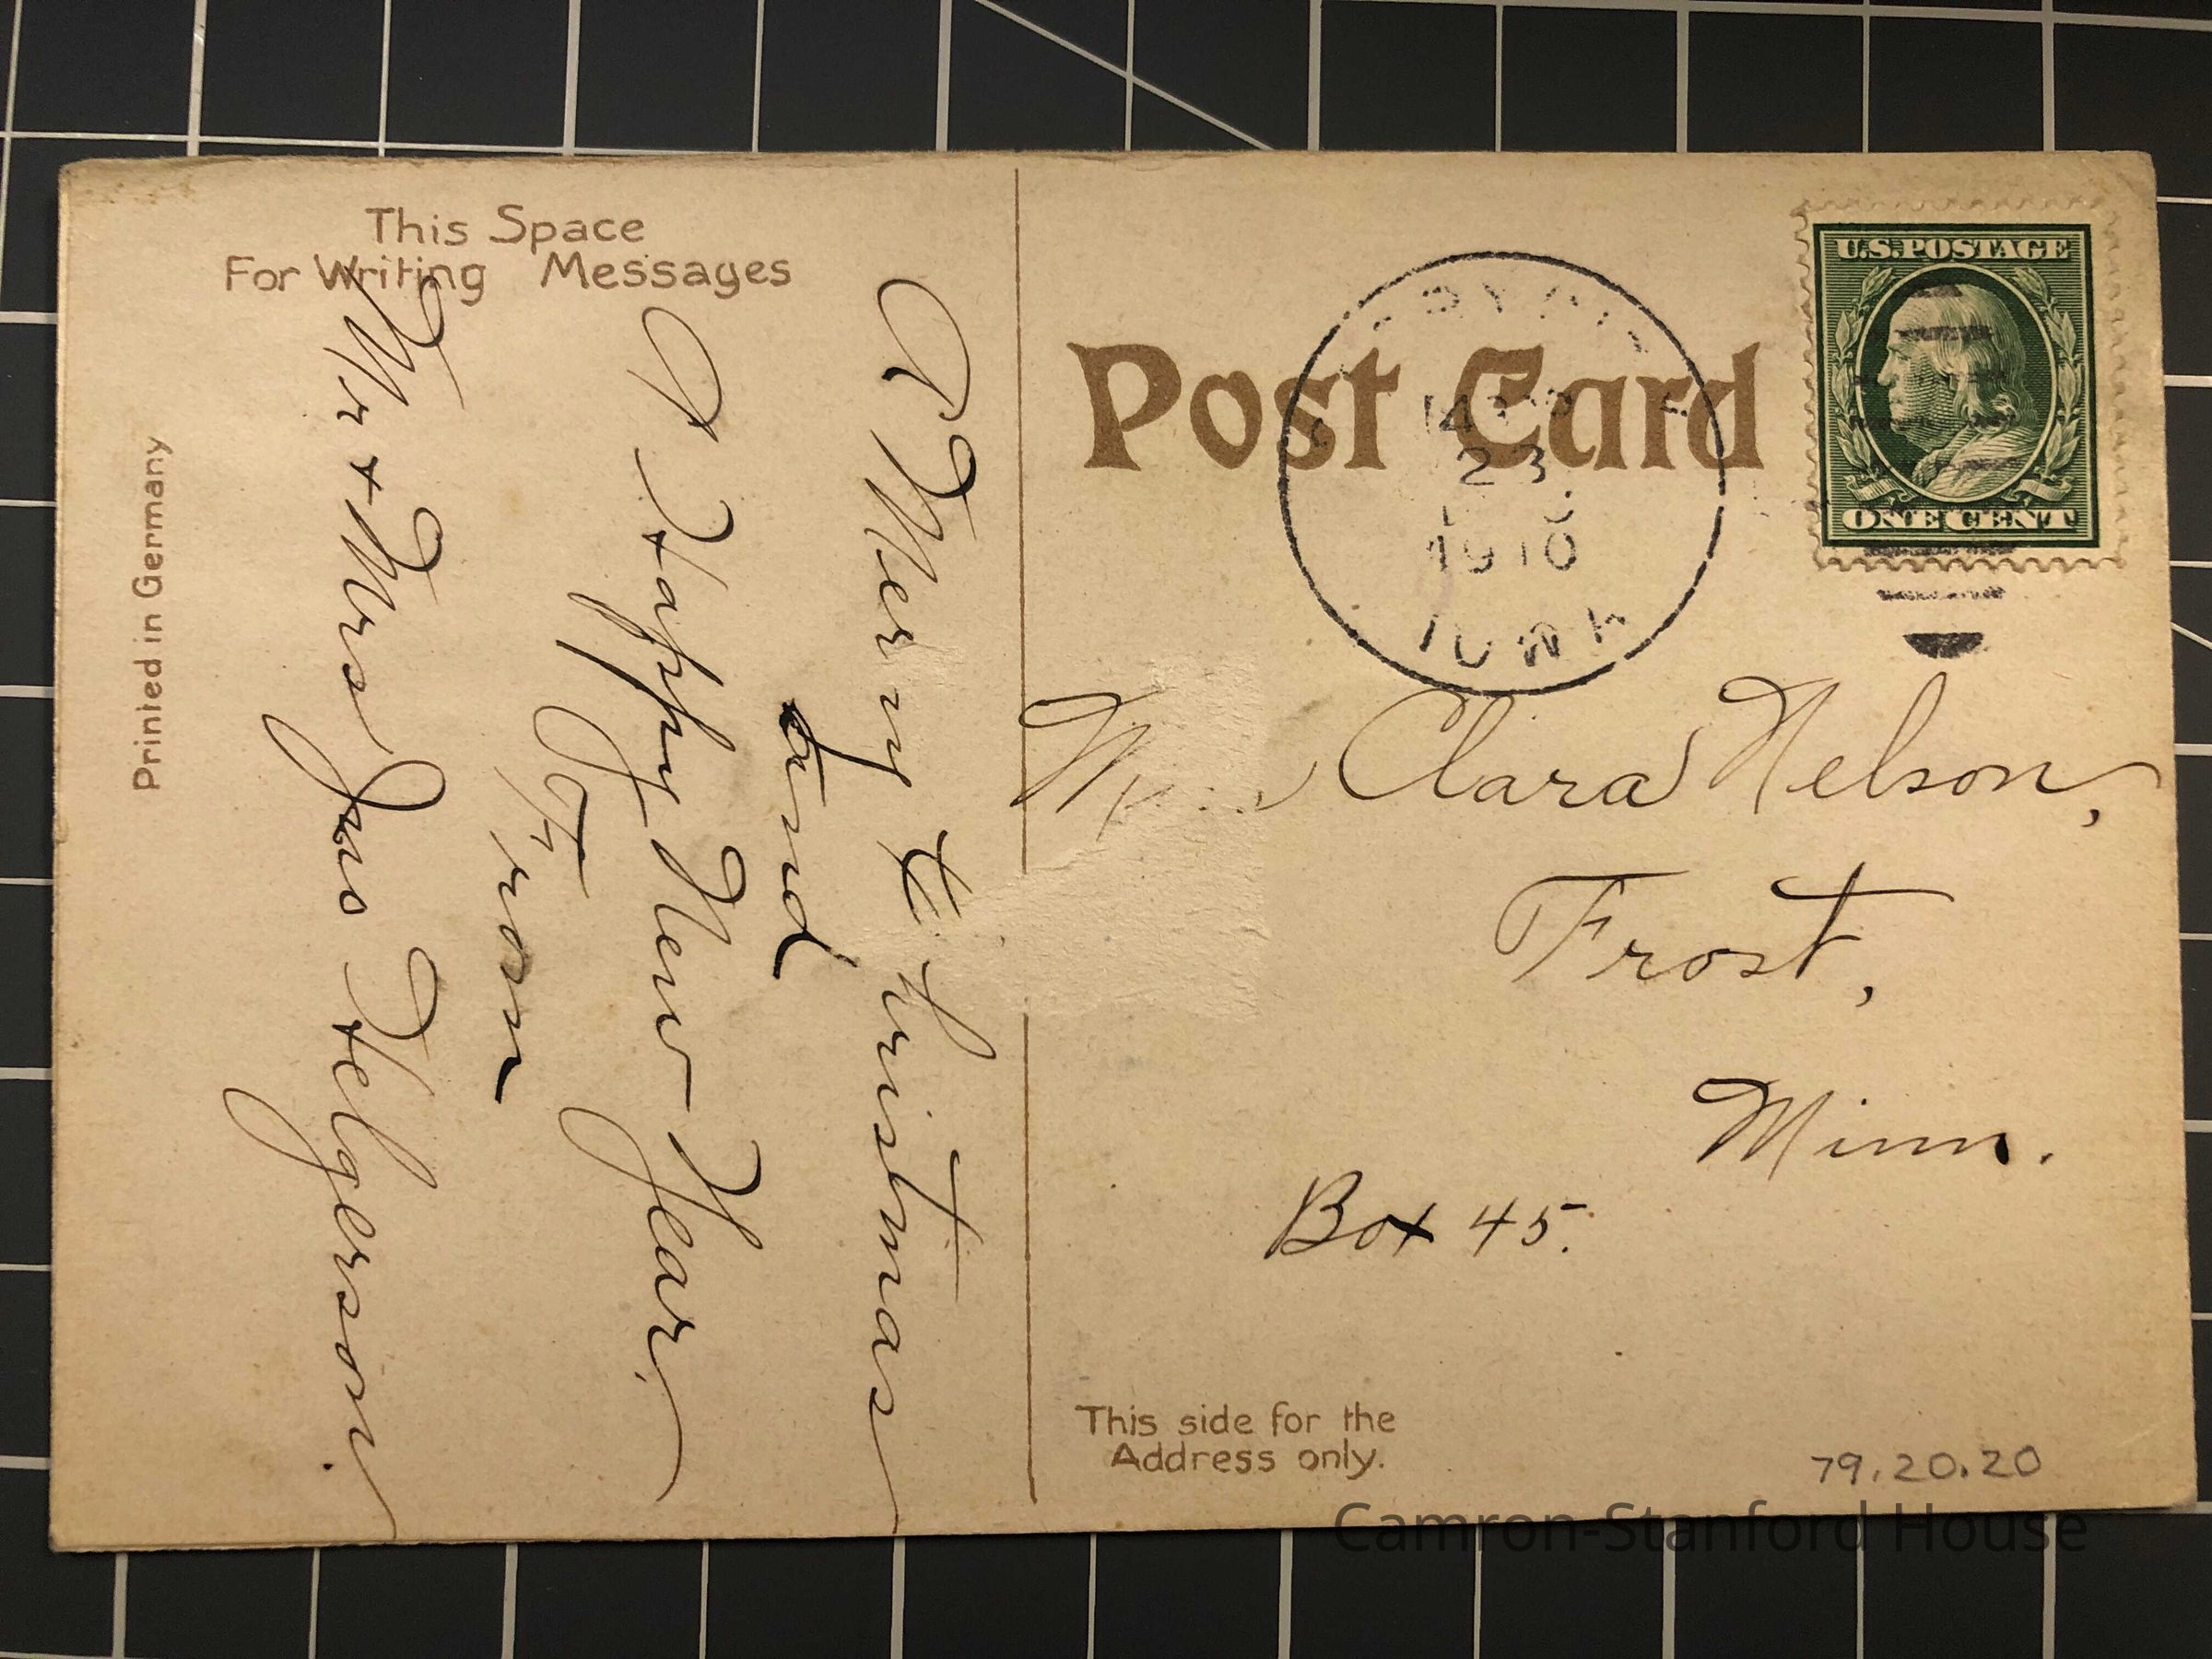 This Space
For Writing Messages
A Merry Christmas
and
A Happy New Year.
From
Mr + Mrs Jas Helgerson.
Printed in Germany
Post Card
23
1910
IOWA
U.S. POSTAGE
ONE CENT
Clara Nelson,
Frost,
Minn.
Box 45.
This side for the
Address only.
79.20.20
Camron-Stanford House